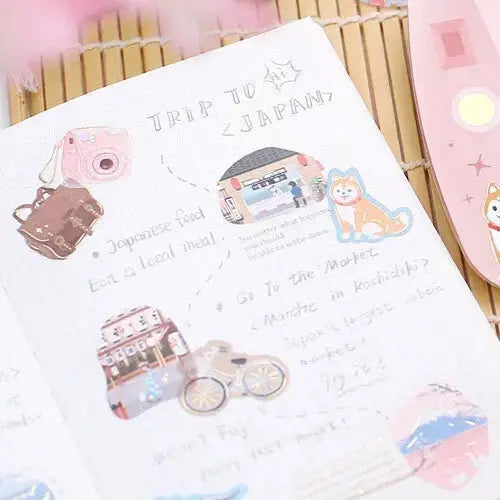 TRIP TO
Hi
<JAPAN>
• Japanese food
Eat a local meal.
No matter what happens
you should
be able to settle down
• Go To the Market
<Marche in Kachidoki>
Japan's largest urban
market!
Try it!